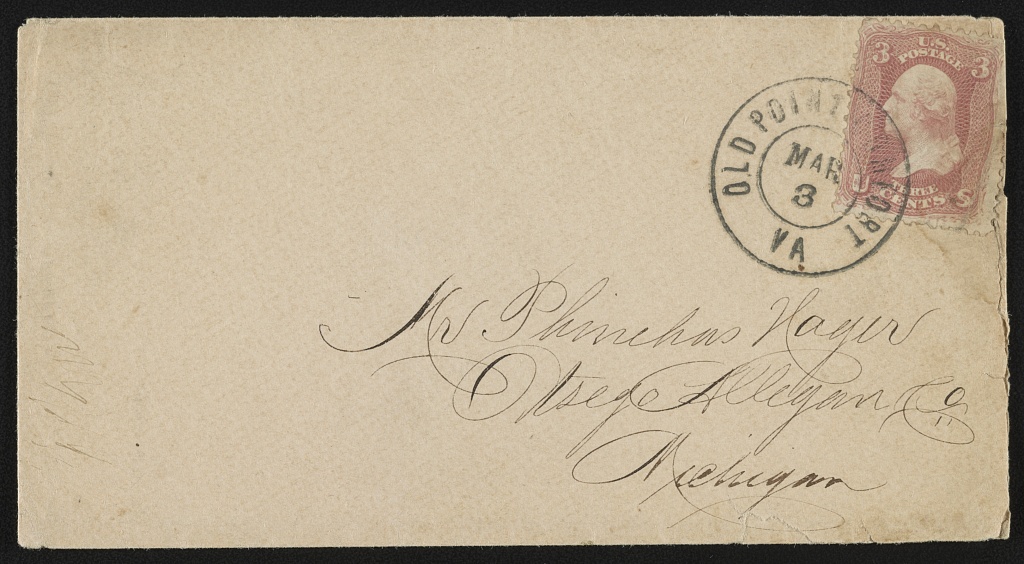 3 U.S. 3
POSTAGE
U THREE S
CENTS
OLD POINT
MAR
3
VA
Mr Phinehas Hager
Otsego Allegan Co
Michigan